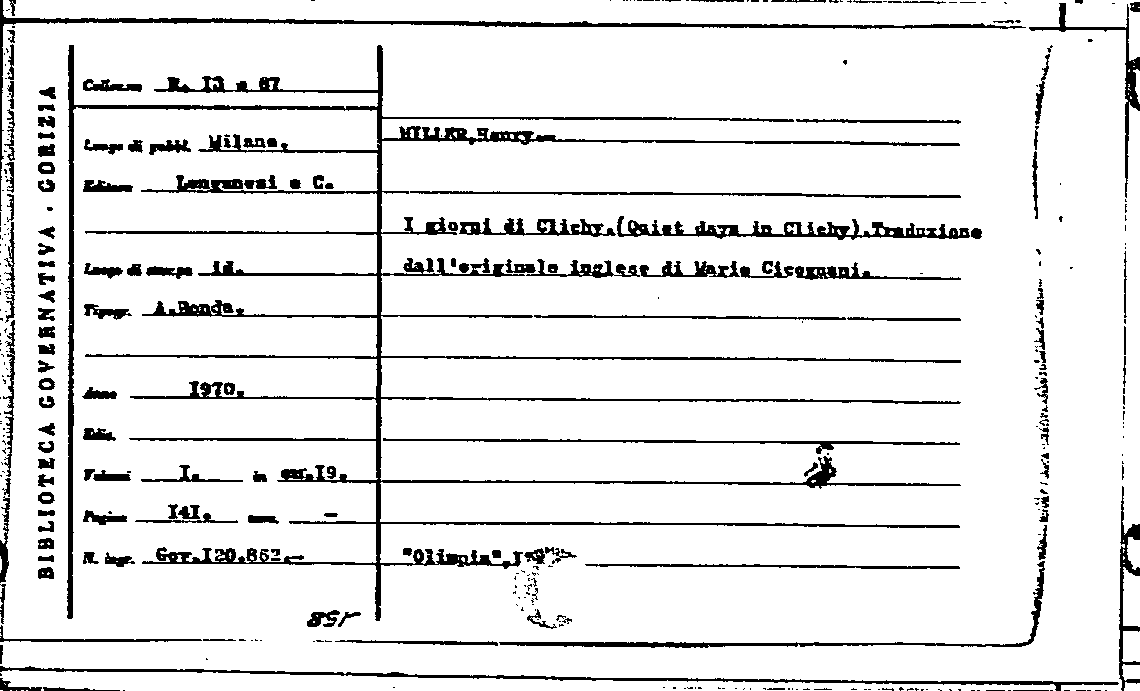 BIBLIOTECA GOVERNATIVA . GORIZIA
Collocaz. R. I3 a 67
Luogo di pubbl. Milano.
Editore Longanesi e C.
Luogo di stampa id.
Tipogr. A.Ronda.
Anno I970.
Ediz.
Volumi I. in cm.I9.
Pagine I4I. —
N. ingr. Gov.I20.862.—
MILLER,Henry.—
I giorni di Clichy.(Quiet days in Clichy).Traduzione
dall'originale inglese di Mario Cicognani.
"Olimpia",